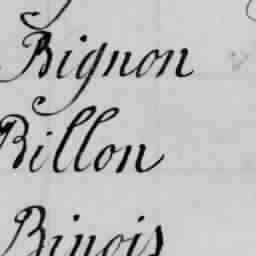 Bignon
Billon
Binois